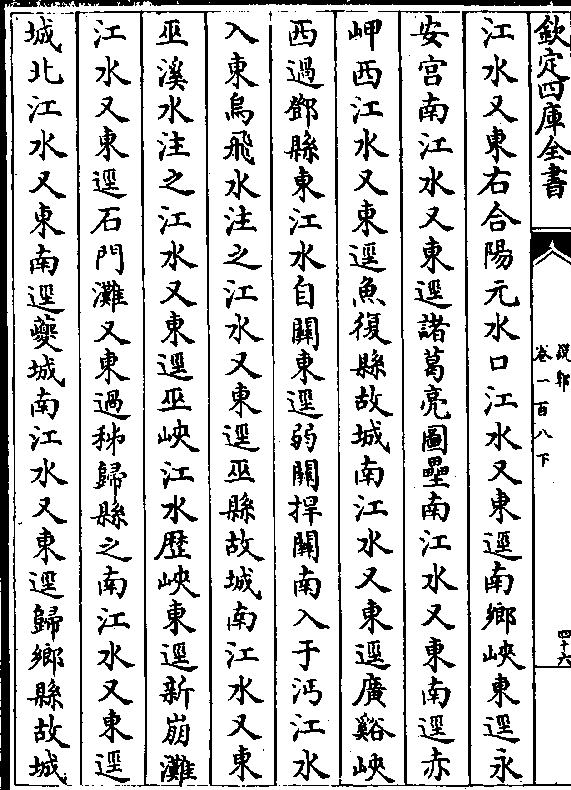 欽定四庫全書
說郛
卷一百八下
四十六
江水又東右合陽元水口江水又東逕南鄉峽東逕永
安宮南江水又東逕諸葛亮圖壘南江水又東南逕赤
岬西江水又東逕魚復縣故城南江水又東逕廣谿峽
西過鄧縣東江水自關東逕弱關捍關南入于沔江水
入東烏飛水注之江水又東逕巫縣故城南江水又東
巫溪水注之江水又東逕巫峽江水歴峽東逕新崩灘
江水又東逕石門灘又東過秭歸縣之南江水又東逕
城北江水又東南逕夔城南江水又東逕歸鄉縣故城